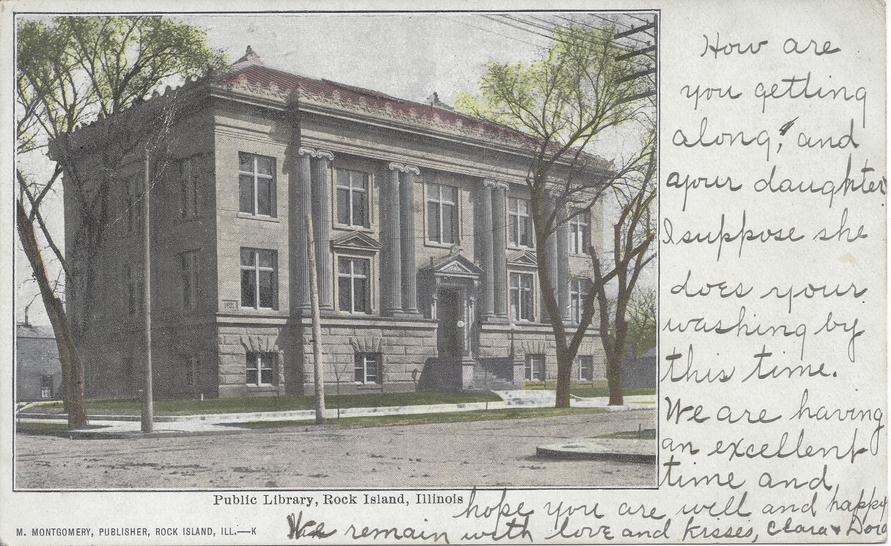 How are
you getting
along, and
your daughter
I suppose she
does your
washing by
this time.
We are having
an excellent
time and
hope you are well and happy
We remain with love and kisses, Clara & Dora
Public Library, Rock Island, Illinois
M. MONTGOMERY, PUBLISHER, ROCK ISLAND, ILL.—K